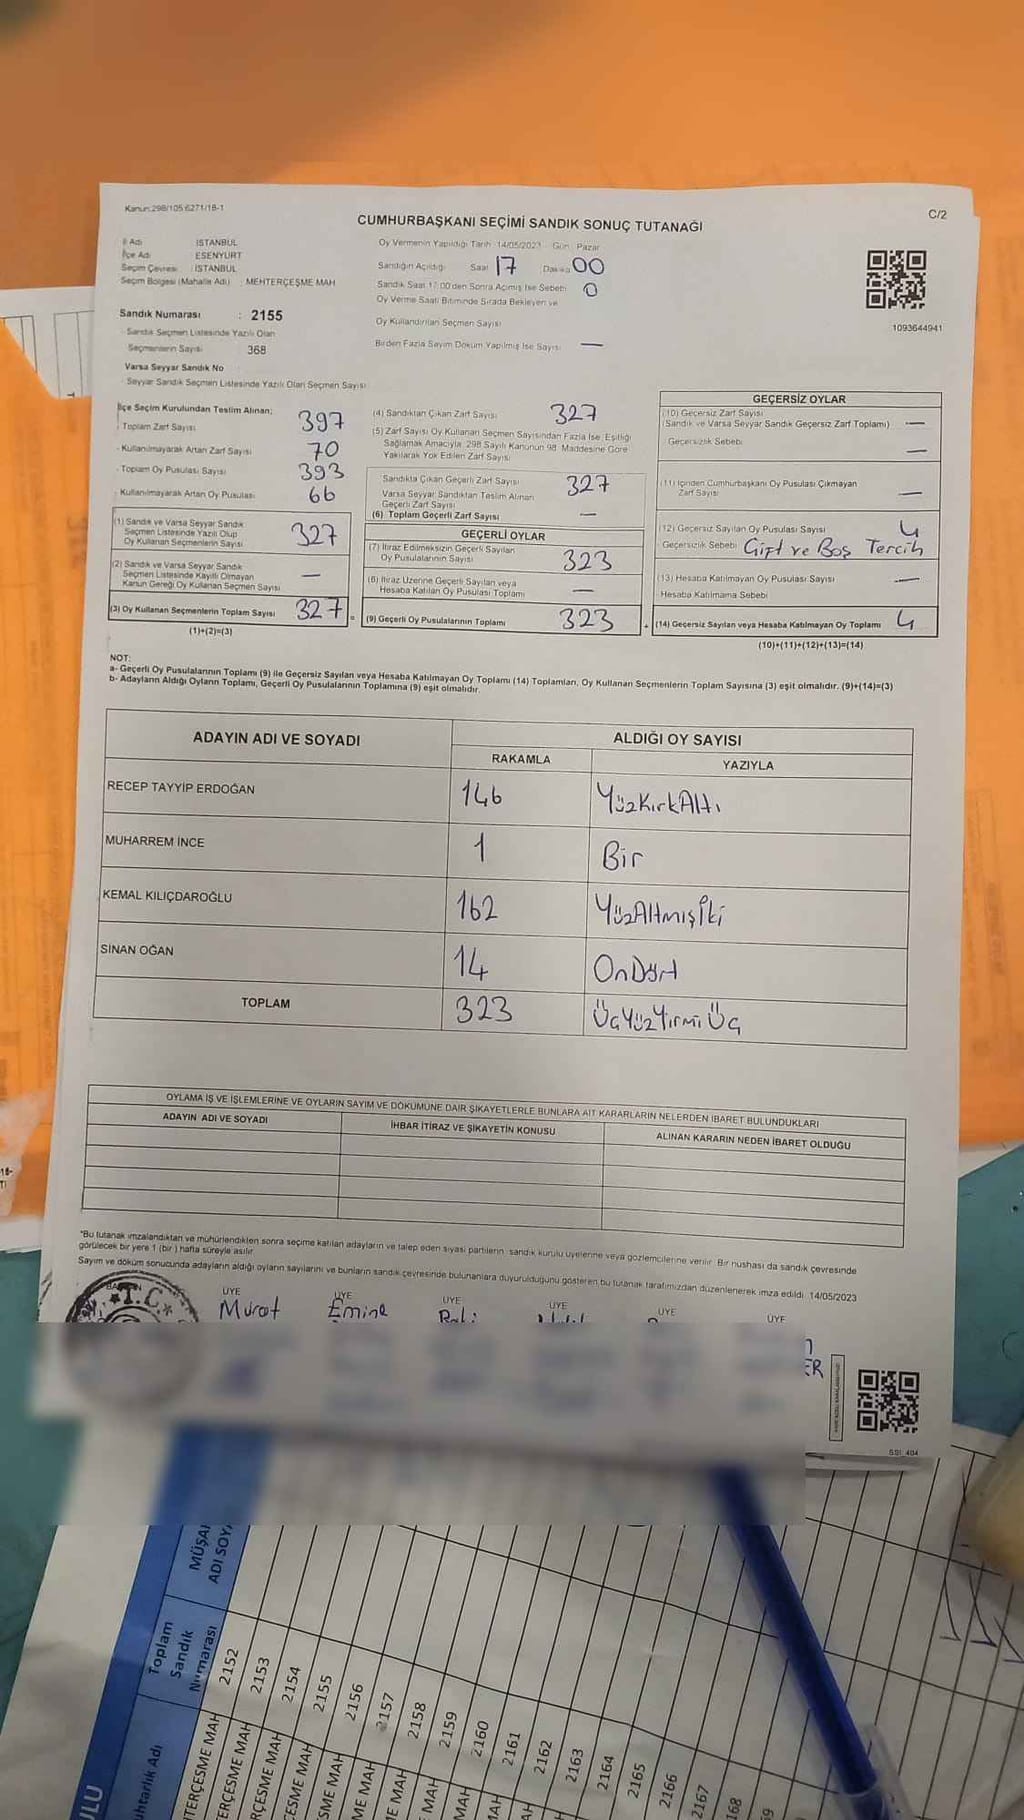 Kanun:298/105 6271/18-1
C/2
CUMHURBAŞKANI SEÇİMİ SANDIK SONUÇ TUTANAĞI
İl Adı İSTANBUL
İlçe Adı ESENYURT
Seçim Çevresi : İSTANBUL
Seçim Bölgesi (Mahalle Adı) : MEHTERÇEŞME MAH
Sandık Numarası : 2155
- Sandık Seçmen Listesinde Yazılı Olan
Seçmenlerin Sayısı 368
Varsa Seyyar Sandık No
- Seyyar Sandık Seçmen Listesinde Yazılı Olan Seçmen Sayısı
Oy Vermenin Yapıldığı Tarih : 14/05/2023 - Gün : Pazar
Sandığın Açıldığı Saat 17 Dakika 00
Sandık Saat 17:00'den Sonra Açılmış İse Sebebi 0
Oy Verme Saati Bitiminde Sırada Bekleyen ve
Oy Kullandırılan Seçmen Sayısı
Birden Fazla Sayım Döküm Yapılmış İse Sayısı —
1093644941
İlçe Seçim Kurulundan Teslim Alınan;
- Toplam Zarf Sayısı 397
- Kullanılmayarak Artan Zarf Sayısı 70
- Toplam Oy Pusulası Sayısı 393
- Kullanılmayarak Artan Oy Pusulası 66
(1) Sandık ve Varsa Seyyar Sandık
Seçmen Listesinde Yazılı Olup
Oy Kullanan Seçmenlerin Sayısı 327
(2) Sandık ve Varsa Seyyar Sandık
Seçmen Listesinde Kayıtlı Olmayan
Kanun Gereği Oy Kullanan Seçmen Sayısı —
(3) Oy Kullanan Seçmenlerin Toplam Sayısı 327 =
(1)+(2)=(3)
(4) Sandıktan Çıkan Zarf Sayısı 327
(5) Zarf Sayısı Oy Kullanan Seçmen Sayısından Fazla İse, Eşitliği
Sağlamak Amacıyla, 298 Sayılı Kanunun 98. Maddesine Göre
Yakılarak Yok Edilen Zarf Sayısı
Sandıkta Çıkan Geçerli Zarf Sayısı 327
Varsa Seyyar Sandıktan Teslim Alınan
Geçerli Zarf Sayısı
(6) Toplam Geçerli Zarf Sayısı —
GEÇERLİ OYLAR
(7) İtiraz Edilmeksizin Geçerli Sayılan
Oy Pusulalarının Sayısı 323
(8) İtiraz Üzerine Geçerli Sayılan veya
Hesaba Katılan Oy Pusulası Toplamı —
(9) Geçerli Oy Pusulalarının Toplamı 323 +
GEÇERSİZ OYLAR
(10) Geçersiz Zarf Sayısı
(Sandık ve Varsa Seyyar Sandık Geçersiz Zarf Toplamı) —
Geçersizlik Sebebi —
(11) İçinden Cumhurbaşkanı Oy Pusulası Çıkmayan
Zarf Sayısı —
(12) Geçersiz Sayılan Oy Pusulası Sayısı 4
Geçersizlik Sebebi Çift ve Boş Tercih
(13) Hesaba Katılmayan Oy Pusulası Sayısı —
Hesaba Katılmama Sebebi
(14) Geçersiz Sayılan veya Hesaba Katılmayan Oy Toplamı 4
(10)+(11)+(12)+(13)=(14)
NOT:
a- Geçerli Oy Pusulalarının Toplamı (9) ile Geçersiz Sayılan veya Hesaba Katılmayan Oy Toplamı (14) Toplamları, Oy Kullanan Seçmenlerin Toplam Sayısına (3) eşit olmalıdır. (9)+(14)=(3)
b- Adayların Aldığı Oyların Toplamı, Geçerli Oy Pusulalarının Toplamına (9) eşit olmalıdır.
ADAYIN ADI VE SOYADI
ALDIĞI OY SAYISI
RAKAMLA YAZIYLA
RECEP TAYYİP ERDOĞAN 146 YüzKırkAltı
MUHARREM İNCE 1 Bir
KEMAL KILIÇDAROĞLU 162 YüzAltmışİki
SİNAN OĞAN 14 OnDört
TOPLAM 323 ÜçYüzYirmiÜç
OYLAMA İŞ VE İŞLEMLERİNE VE OYLARIN SAYIM VE DÖKÜMÜNE DAİR ŞİKAYETLERLE BUNLARA AİT KARARLARIN NELERDEN İBARET BULUNDUKLARI
ADAYIN ADI VE SOYADI İHBAR İTİRAZ VE ŞİKAYETİN KONUSU ALINAN KARARIN NEDEN İBARET OLDUĞU
*Bu tutanak imzalandıktan ve mühürlendikten sonra seçime katılan adayların ve talep eden siyasi partilerin sandık kurulu üyelerine veya gözlemcilerine verilir. Bir nüshası da sandık çevresinde
görülecek bir yere 1 (bir) hafta süreyle asılır.
Sayım ve döküm sonucunda adayların aldığı oyların sayılarını ve bunların sandık çevresinde bulunanlara duyurulduğunu gösteren bu tutanak tarafımızdan düzenlenerek imza edildi. 14/05/2023
T.C.
ÜYE ÜYE ÜYE ÜYE ÜYE ÜYE
Murat Emine
ER
SSI_404
MÜŞA
ADI SOY
Toplam
Sandık
Numarası
ULU
htarlık Adı
TERÇEŞME MAH 2152
ERÇEŞME MAH 2153
RÇEŞME MAH 2154
ÇEŞME MAH 2155
ŞME MAH 2156
ME MAH 2157
E MAH 2158
MAH 2159
MAH 2160
AH 2161
2162
2163
2164
2165
2166
2167
168